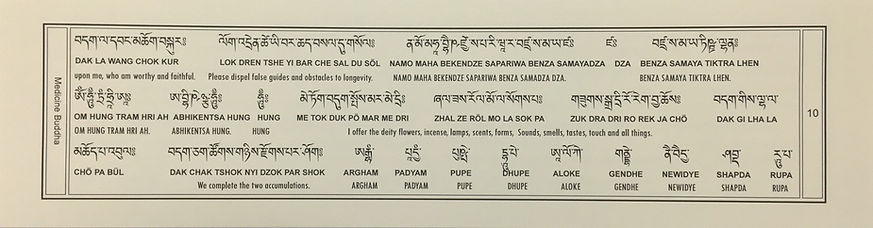 Medicine Buddha
བདག་ལ་དབང་མཆོག་བསྐུར༔ ལོག་འདྲེན་ཚེ་ཡི་བར་ཆད་བསལ་དུ་གསོལ༔ ན་མོ་མ་ཧཱ་བྷཻ་ཥ་ཛྱེ་ས་པ་རི་ཝཱ་ར་བཛྲ་ས་མ་ཡ་ཛཿ ཛཿ བཛྲ་ས་མ་ཡ་ཏིཥྛ་ལྷན༔
DAK LA WANG CHOK KUR LOK DREN TSHE YI BAR CHE SAL DU SÖL NAMO MAHA BEKENDZE SAPARIWA BENZA SAMAYADZA DZA BENZA SAMAYA TIKTRA LHEN
upon me, who am worthy and faithful. Please dispel false guides and obstacles to longevity. NAMO MAHA BEKENDZE SAPARIWA BENZA SAMADZA DZA. BENZA SAMAYA TIKTRA LHEN.
ཨོཾ་ཧཱུྃ་ཏྲཱཾ་ཧྲཱིཿ་ཨཱཿ ཨ་བྷི་ཥིཉྩ་ཧཱུྃ༔ ཧཱུྃ༔ མེ་ཏོག་བདུག་སྤོས་མར་མེ་དྲི༔ ཞལ་ཟས་རོལ་མོ་ལ་སོགས་པ༔ གཟུགས་སྒྲ་དྲི་རོ་རེག་བྱ་ཆོས༔ བདག་གིས་ལྷ་ལ་
OM HUNG TRAM HRI AH ABHIKENTSA HUNG HUNG ME TOK DUK PÖ MAR ME DRI ZHAL ZE RÖL MO LA SOK PA ZUK DRA DRI RO REK JA CHÖ DAK GI LHA LA
OM HUNG TRAM HRI AH. ABHIKENTSA HUNG. HUNG I offer the deity flowers, incense, lamps, scents, forms, Sounds, smells, tastes, touch and all things.
མཆོད་པ་འབུལ༔ བདག་ཅག་ཚོགས་གཉིས་རྫོགས་པར་ཤོག༔ ཨརྒྷཾ་ པཱདྱཾ་ པུཥྤེ་ དྷཱུ་པེ་ ཨཱ་ལོ་ཀེ་ གནྡྷེ་ ནཻ་ཝི་དྱེ་ ཤཔྡ་ རཱུ་པ་
CHÖ PA BÜL DAK CHAK TSHOK NYI DZOK PAR SHOK ARGHAM PADYAM PUPE DHUPE ALOKE GENDHE NEWIDYE SHAPDA RUPA
We complete the two accumulations. ARGHAM PADYAM PUPE DHUPE ALOKE GENDHE NEWIDYE SHAPDA RUPA
10